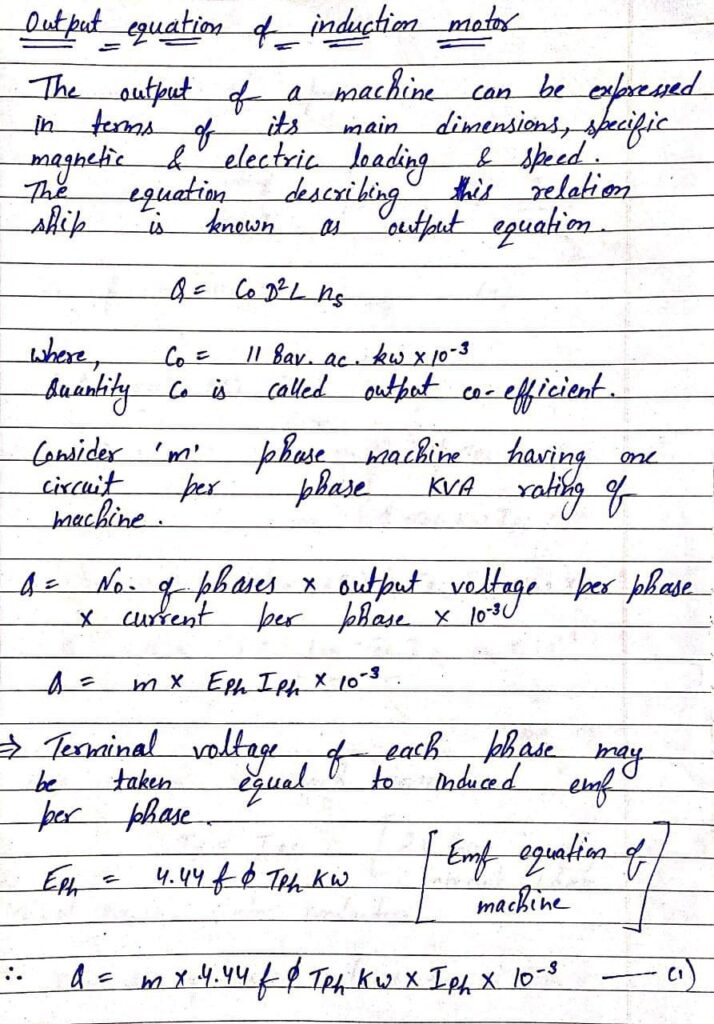 Output equation of induction motor
The output of a machine can be expressed
in terms of its main dimensions, specific
magnetic & electric loading & speed.
The equation describing this relation
ship is known as output equation.
Q = Co D²L ns
where, Co = 11 Bav. ac. kw x 10-3
Quantity Co is called output co-efficient.
Consider 'm' phase machine having one
circuit per phase KVA rating of
machine.
Q = No. of phases x output voltage per phase
x current per phase x 10-3
Q = m x Eph Iph x 10-3.
⇒ Terminal voltage of each phase may
be taken equal to induced emf
per phase.
Eph = 4.44 f ϕ Tph Kw [Emf equation of
machine]
∴ Q = m x 4.44 f ϕ Tph Kw x Iph x 10-3 — (1)